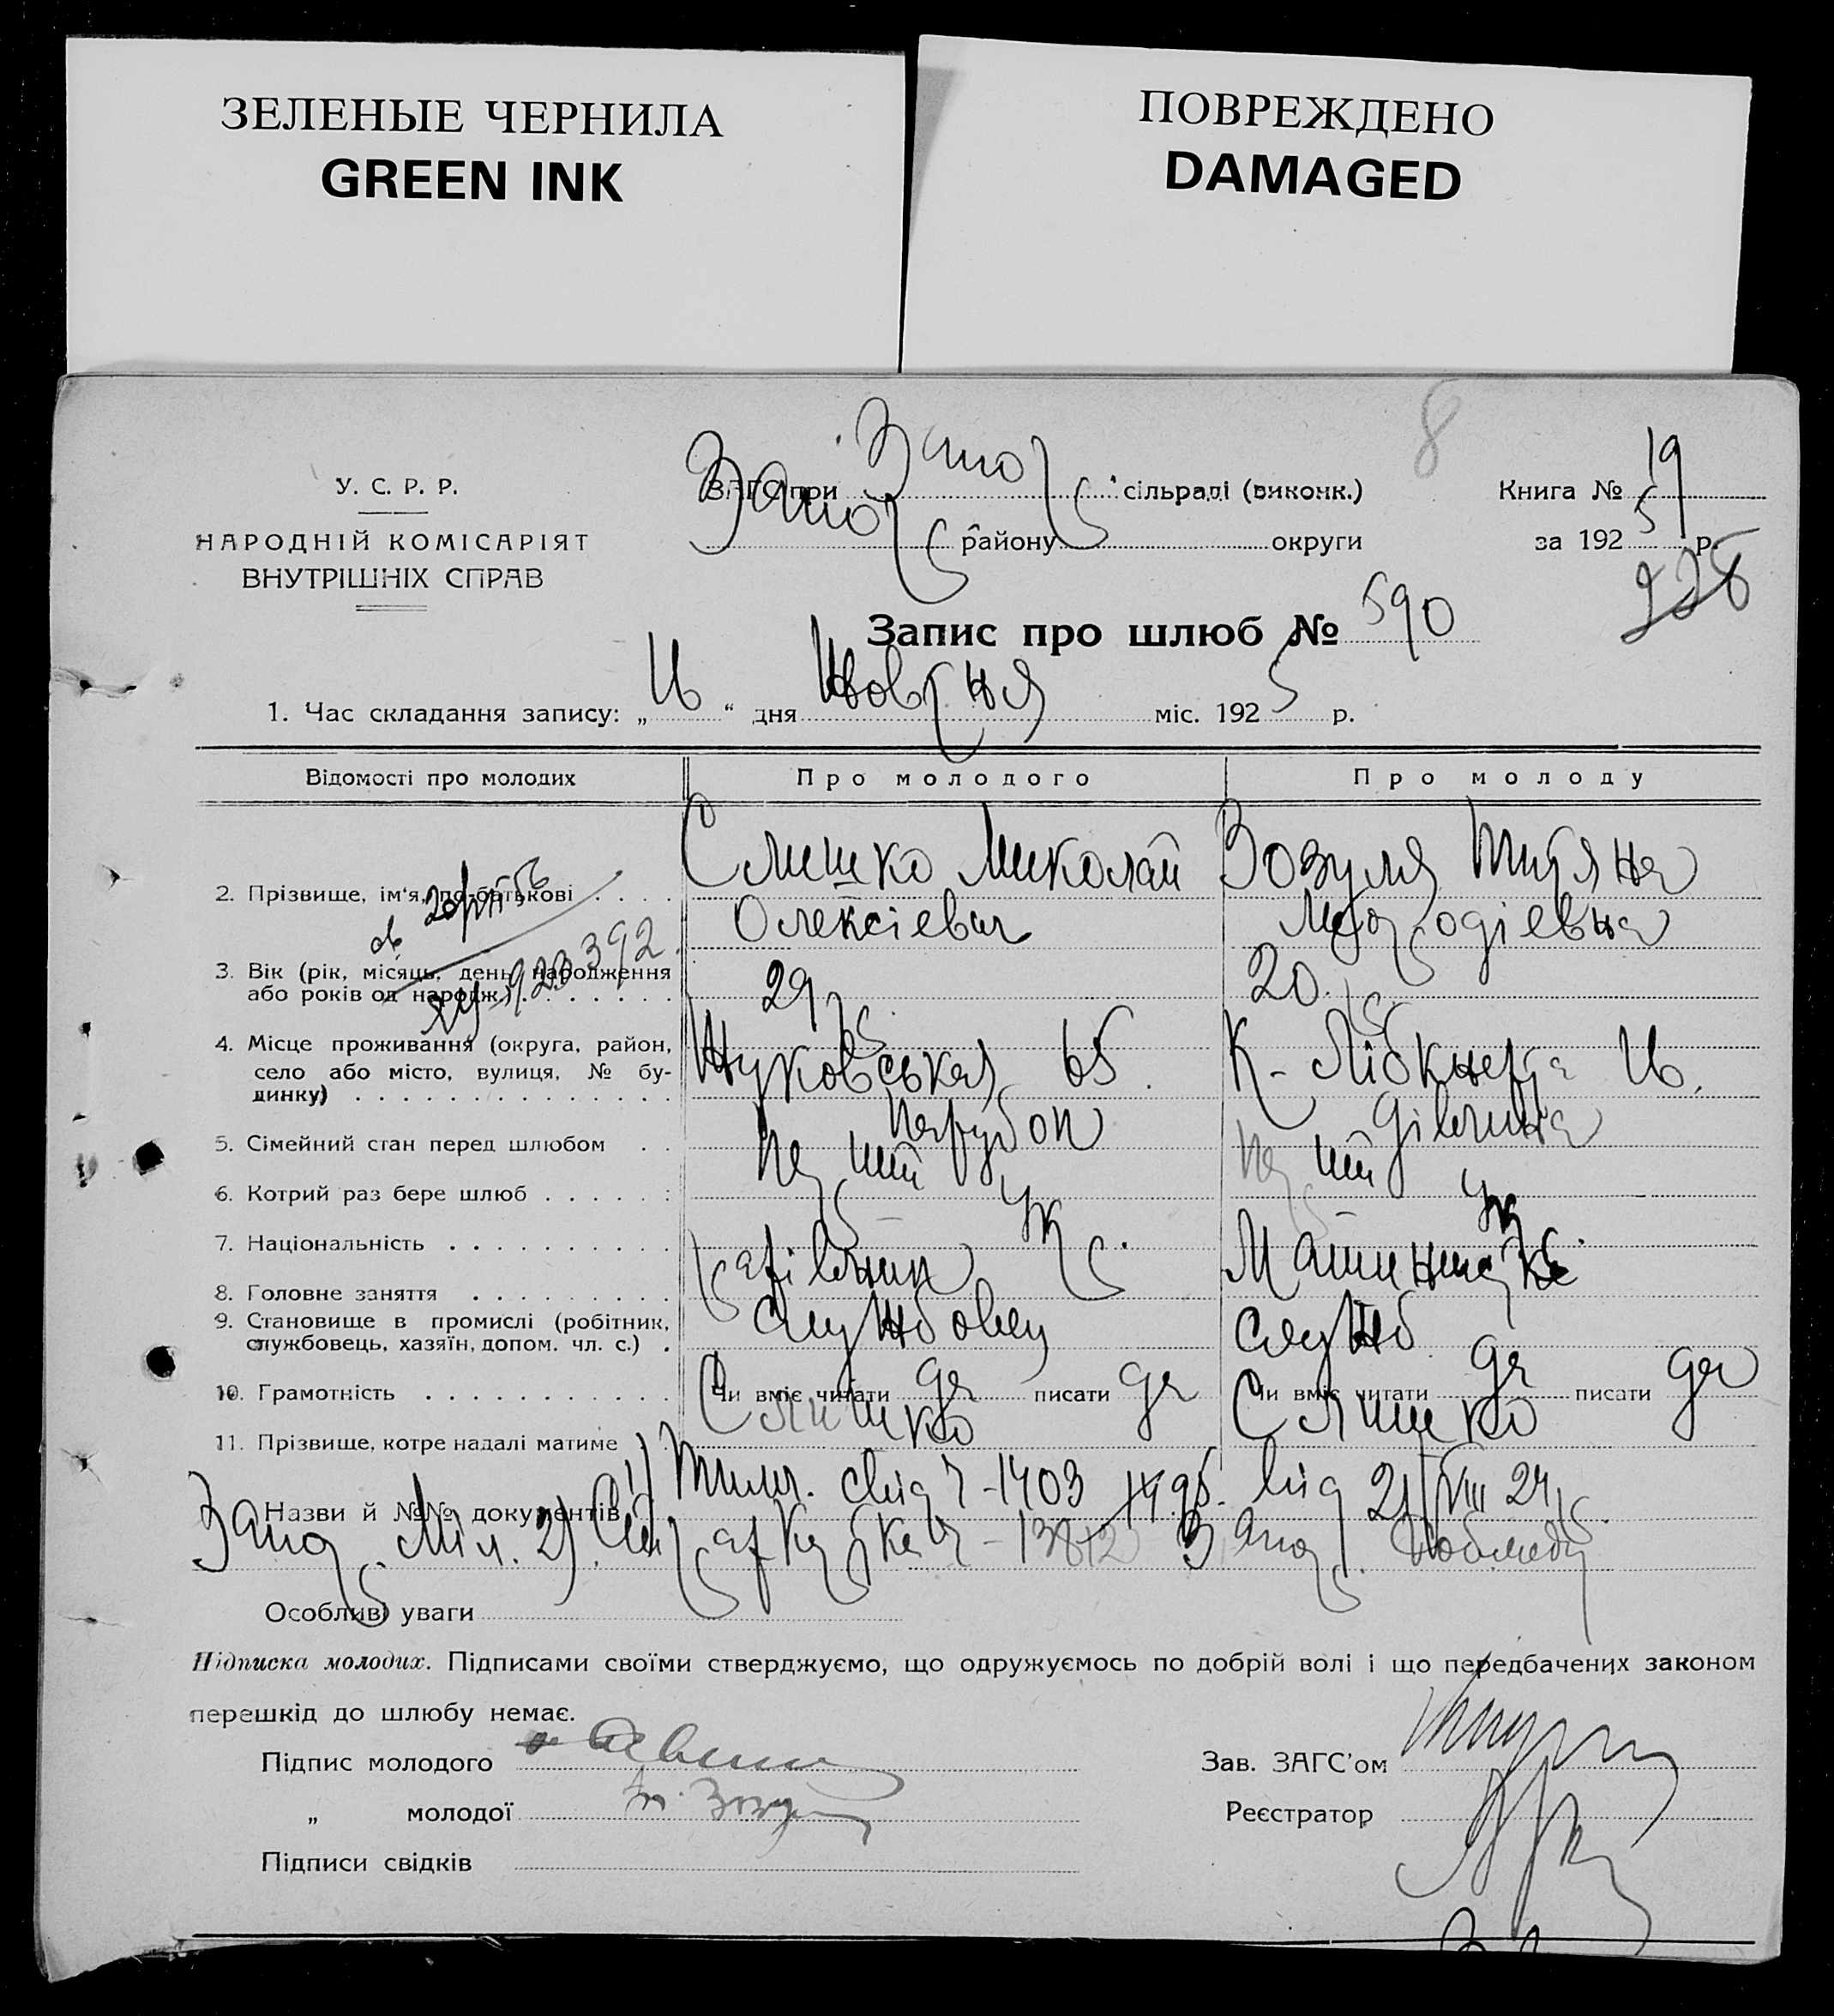 ЗЕЛЕНЫЕ ЧЕРНИЛА
GREEN INK
ПОВРЕЖДЕНО
DAMAGED
8
У. С. Р. Р.
НАРОДНІЙ КОМІСАРІЯТ
ВНУТРІШНІХ СПРАВ
ЗАГС при Запор сільраді (виконк.)
Запор району округи
Книга № 19
за 1925 р.
Запис про шлюб № 590
1. Час складання запису: „16“ дня Жовтня міс. 1925 р.
Відомості про молодих Про молодого Про молоду
2. Прізвище, ім'я, по-батькові Слишко Миколай Зозуля Титяна
Олексієвич Мефодієвна
3. Вік (рік, місяць, день народження
або років од народж.) 29 р. 20 р.
923392
4. Місце проживання (округа, район,
село або місто, вулиця, № бу-
динку) Жуковська 65. К-Лібкнехта 16.
5. Сімейний стан перед шлюбом Парубок дівчина
6. Котрий раз бере шлюб перший перший
7. Національність Укр. Укр.
8. Головне заняття
9. Становище в промислі (робітник,
службовець, хазяїн, допом. чл. с.) службовец служб
10. Грамотність Чи вміє читати да писати да Чи вміє читати да писати да
11. Прізвище, котре надалі матиме Слишко Слишко
Назви й №№ документів 1) Тимч. свид Ч-1403 від 21/VIII 24 р.
Запор. Міл. 2) Ч-13812 Запор.
Особливі уваги
Підписка молодих. Підписами своїми стверджуємо, що одружуємось по добрій волі і що передбачених законом
перешкід до шлюбу немає.
Підпис молодого
„ молодої Т. Зозуля
Підписи свідків
Зав. ЗАГС'ом
Реєстратор